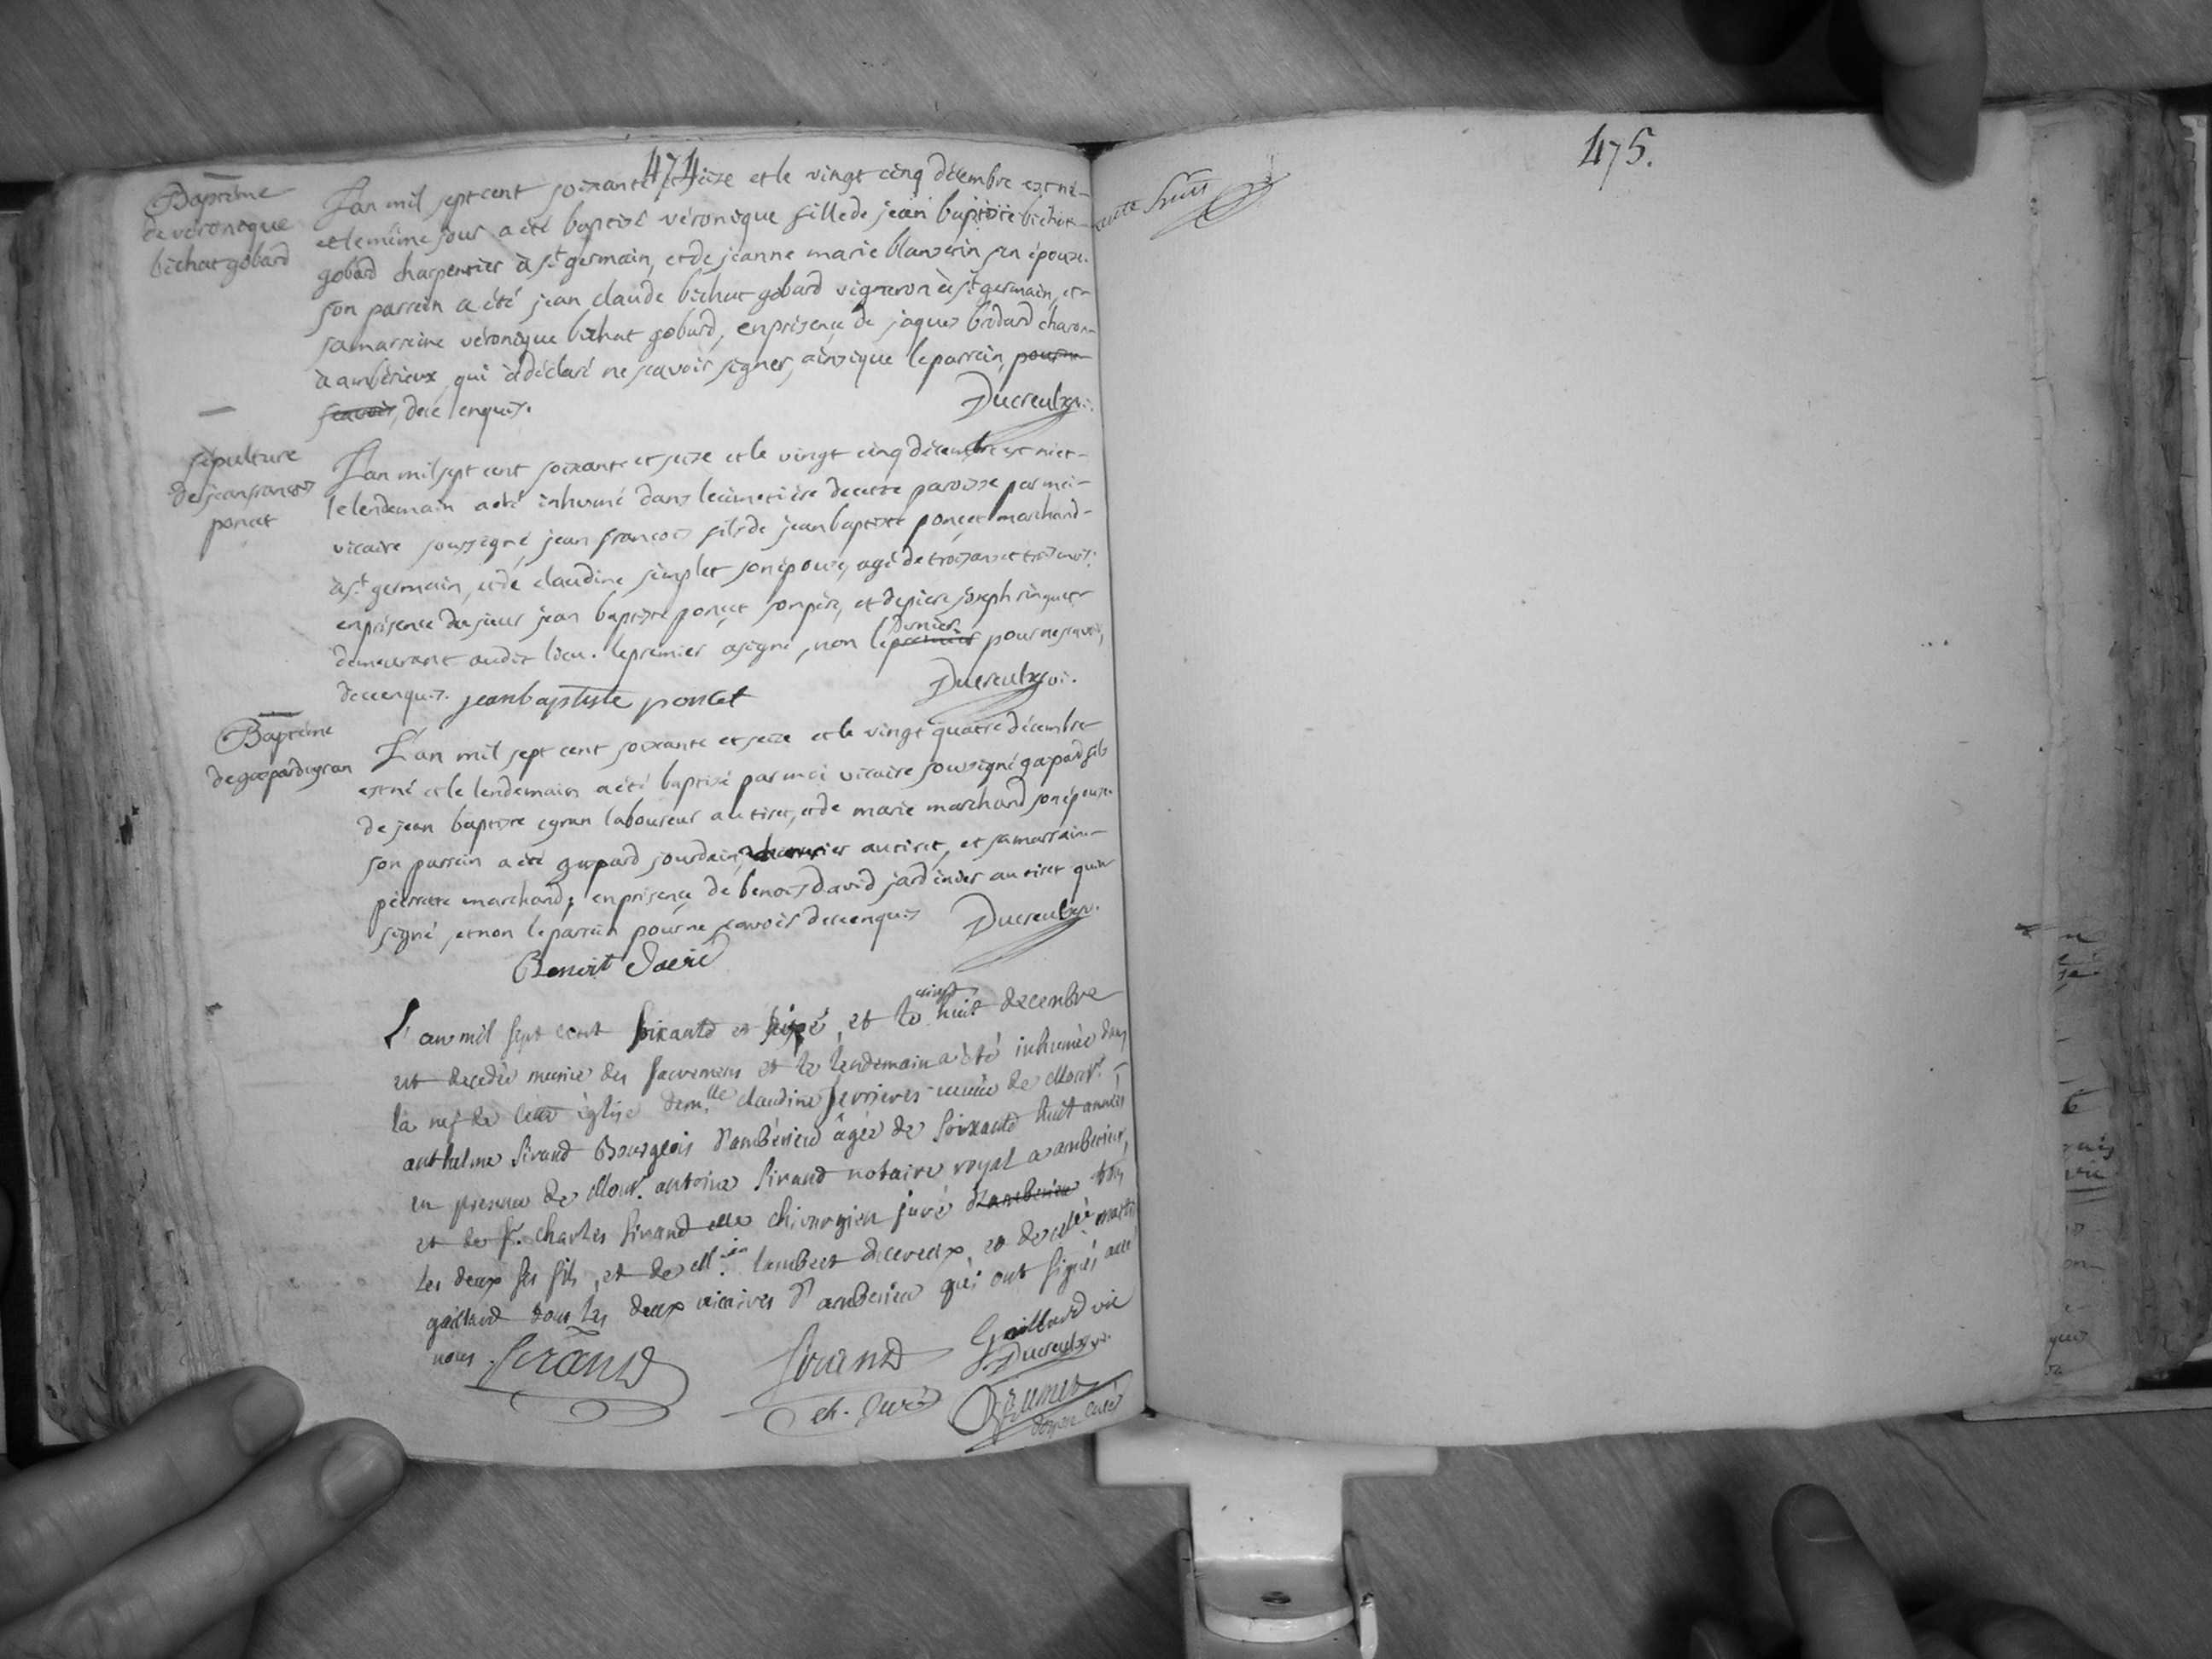 474
Baptême
de véronique
bichat gobard
L'an mil sept cent soixante et seize et le vingt cinq décembre est né
et le même jour a été baptisé véronique fille de jean baptiste bichat
gobard charpentier à st germain, et de jeanne marie blanserin son épouse.
son parrein a été jean claude bichat gobard vigneron à st germain, et
sa marreine véronique bichat gobard, en présence de jaques brodard charon
à ambérieux qui a déclaré ne scavoir signer, ainsi que le parrein, pour ne
scavoir, de ce enquis. Ducreulx v.
sépulture
de jean francois
poncet
L'an mil sept cent soixante et seize et le vingt cinq décembre est mort
le lendemain a été inhumé dans le cimetière de cette paroisse par moi
vicaire soussigné, jean francois fils de jean baptiste poncet marchand
à st germain, et de claudine simplet son épouse, agé de trois ans et trois mois.
en présence du sieur jean baptiste poncet son père, et de piere joseph ringuet
demeurant audit lieu. le premier a signé, non le premier dernier pour ne scavoir,
de ce enquis. jean baptiste poncet Ducreulx v.
Baptême
de gaspard ogran
L'an mil sept cent soixante et seize et le vingt quatre décembre
est né et le lendemain a été baptisé par moi vicaire soussigné gapard fils
de jean baptiste ogran laboureur au tiret, et de marie marchand son épouse.
son parrein a été gaspard jourdain, au tiret, et sa marraine
pierrette marchand; en présence de benois david jardinier au tiret qui a
signé, et non le parrein pour ne scavoir de ce enquis Ducreulx v.
Benoit david
L'an mil sept cent soixante et seize, et le vingt huit decembre
est decedée munie des sacremens et le lendemain a été inhumée dans
la nef de cette église demlle claudine ferrieres veuve de Monr.
anthelme sirand Bourgeois d'ambérieu âgée de soixante huit années
en presence de Monr. antoine sirand notaire royal a amberieu,
et de sr. charles sirand chirurgien juré d'amberieu tous
les deux ses fils, et de Mre lambert ducreux, et de
gaillard tous les deux vicaires d'amberieu qui ont signés avec
nous. Sirand Sirand Gaillard vic
Ducreulx v.
ch. Juré
doyen curé
475.